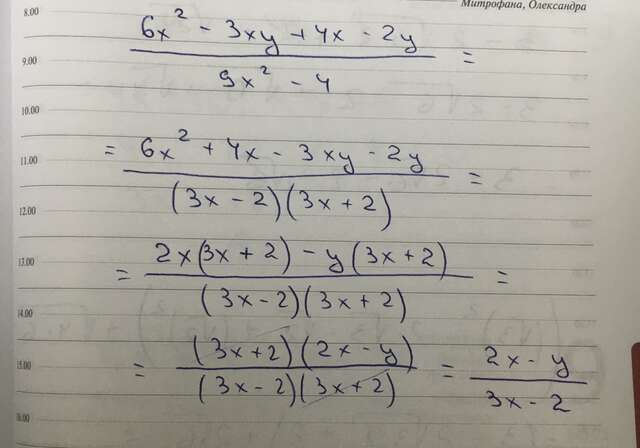 8.00 Митрофана, Олександра
6x² - 3xy + 4x - 2y
9.00 =
9x² - 4
10.00
= 6x² + 4x - 3xy - 2y
11.00 =
(3x - 2)(3x + 2)
12.00
2x(3x + 2) - y(3x + 2)
13.00 = =
(3x - 2)(3x + 2)
14.00
(3x + 2)(2x - y) 2x - y
15.00 = =
(3x - 2)(3x + 2) 3x - 2
16.00